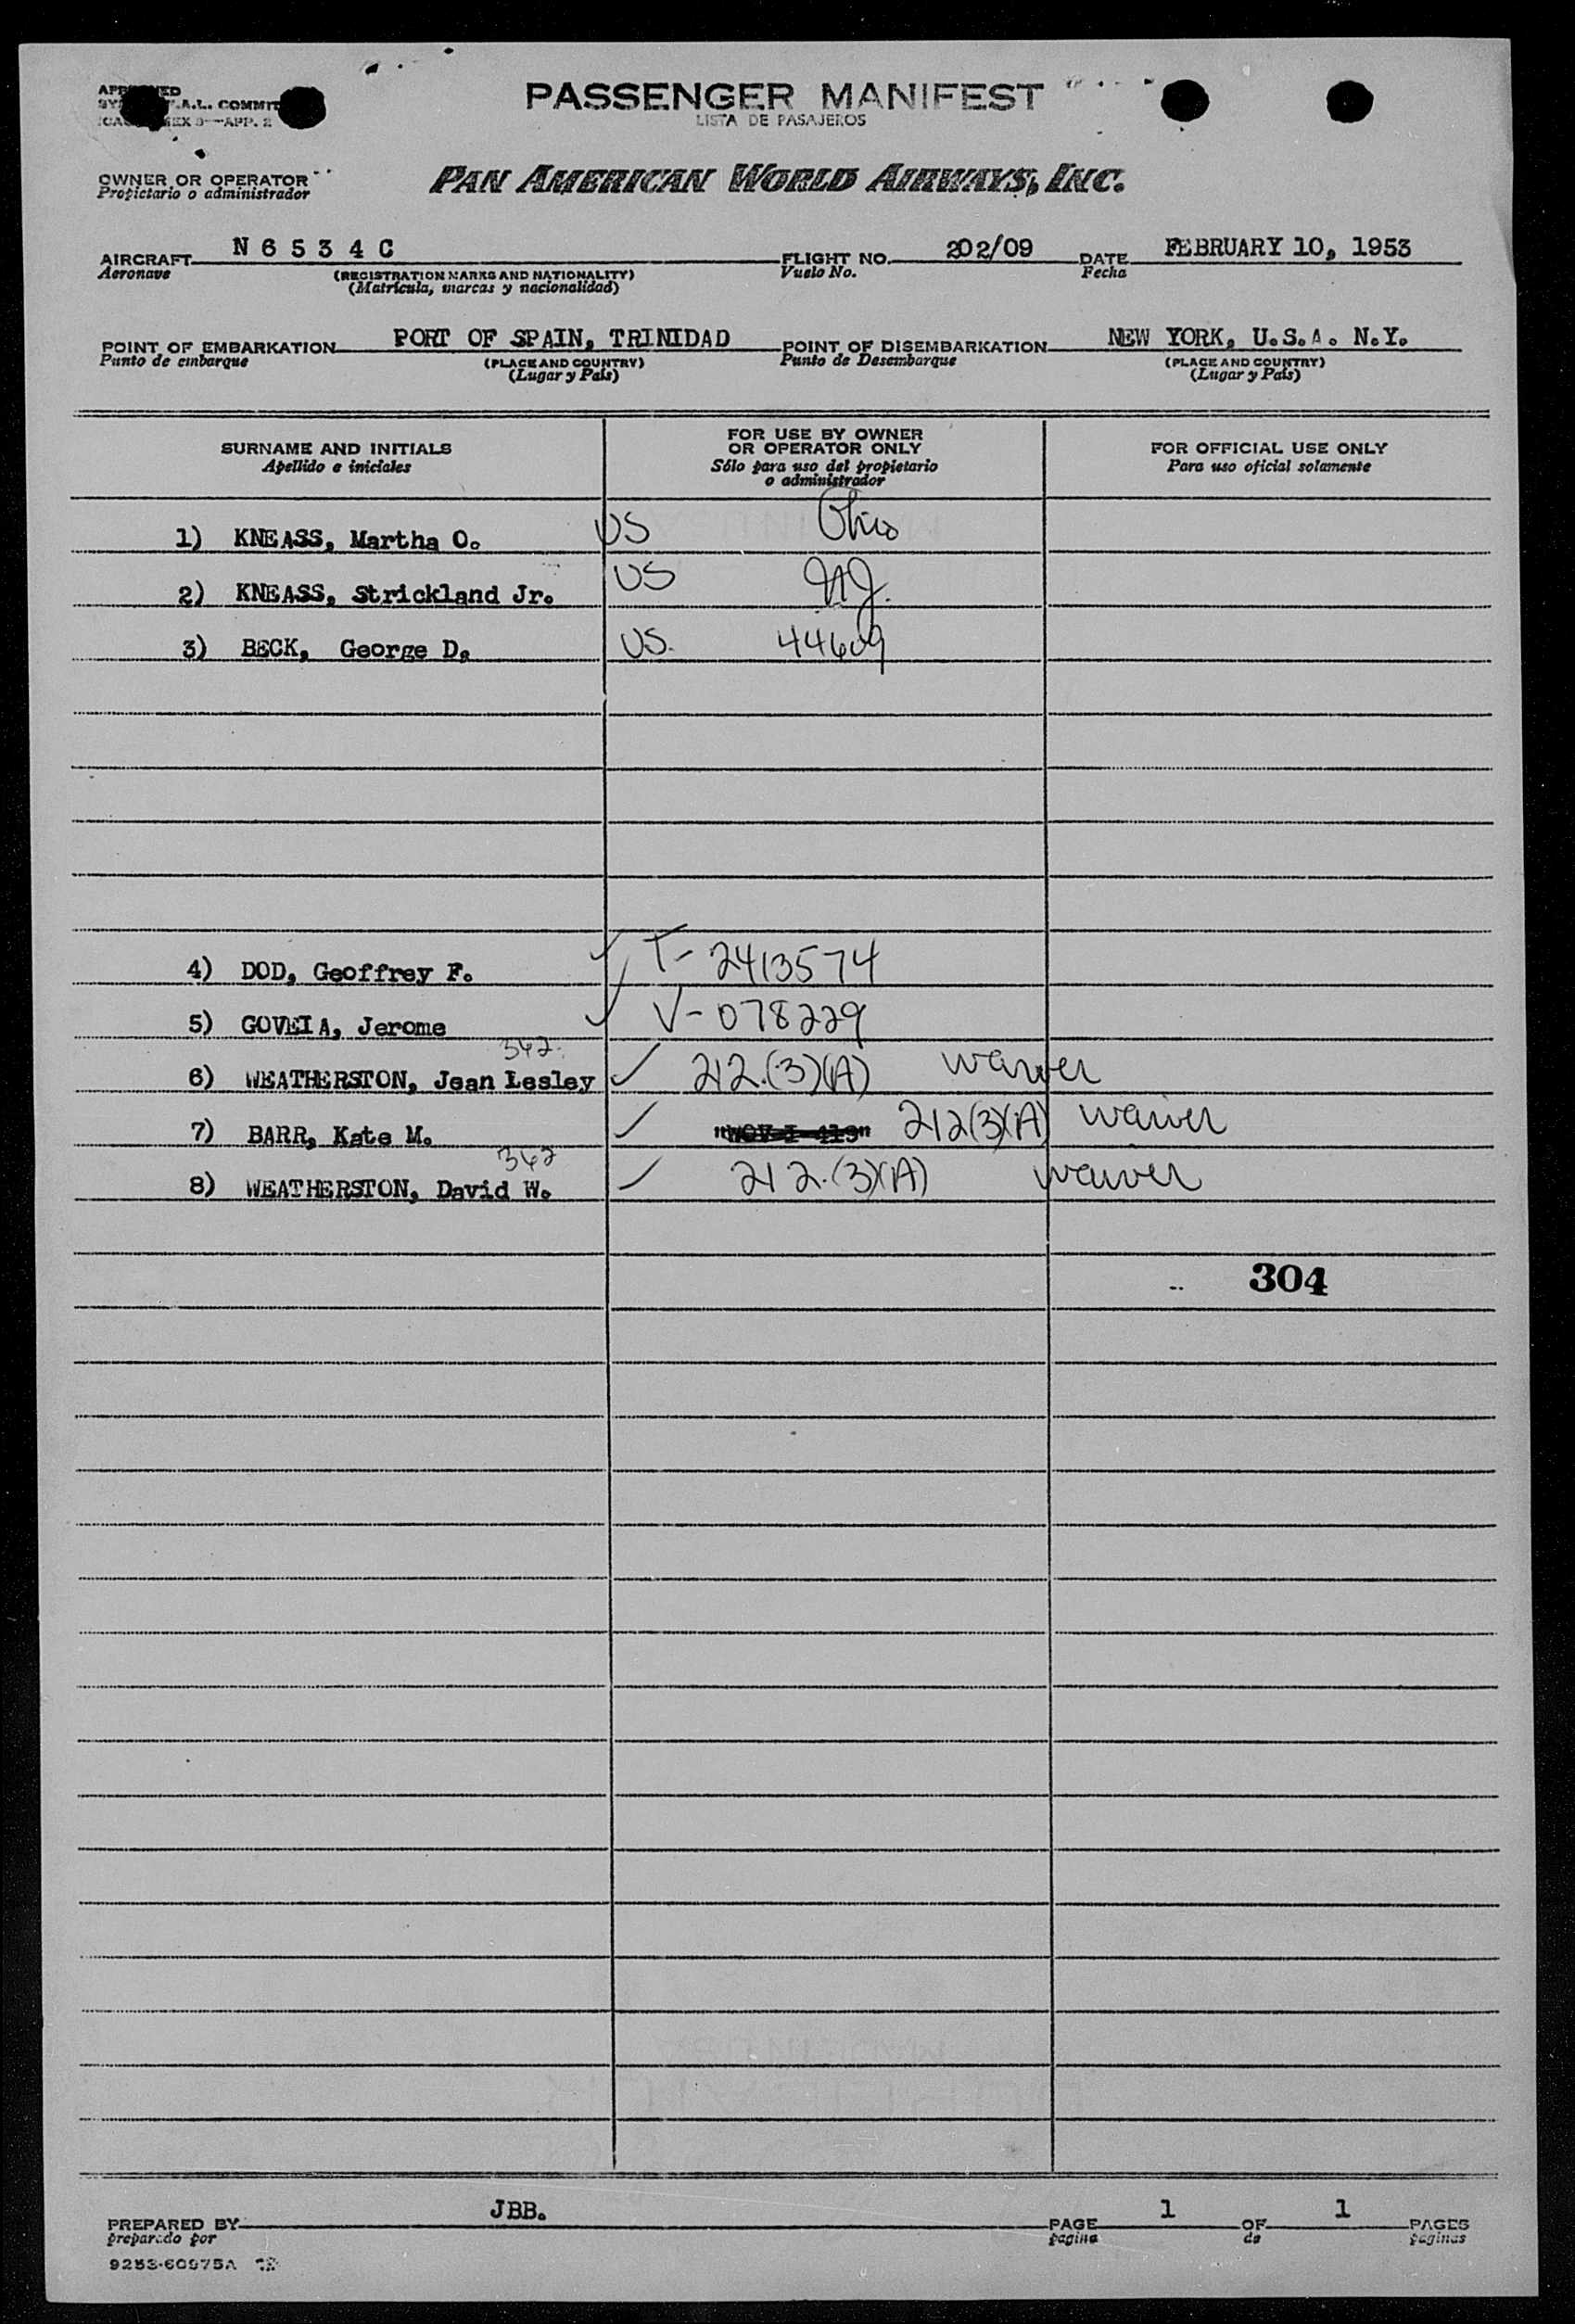 PASSENGER MANIFEST
LISTA DE PASAJEROS
OWNER OR OPERATOR
Propietario o administrador
PAN AMERICAN WORLD AIRWAYS, INC.
AIRCRAFT N 6 5 3 4 C FLIGHT NO. 202/09 DATE FEBRUARY 10, 1953
Aeronave (REGISTRATION MARKS AND NATIONALITY) Vuelo No. Fecha
(Matrícula, marcas y nacionalidad)
POINT OF EMBARKATION PORT OF SPAIN, TRINIDAD POINT OF DISEMBARKATION NEW YORK, U.S.A. N.Y.
Punto de embarque (PLACE AND COUNTRY) Punto de Desembarque (PLACE AND COUNTRY)
(Lugar y País) (Lugar y País)
SURNAME AND INITIALS
Apellido e iniciales
FOR USE BY OWNER
OR OPERATOR ONLY
Sólo para uso del propietario
o administrador
FOR OFFICIAL USE ONLY
Para uso oficial solamente
1) KNEASS, Martha O. US Ohio
2) KNEASS, Strickland Jr. US NJ.
3) BECK, George D. US. 44609
4) DOD, Geoffrey F. ✓ T-2413574
5) GOVEIA, Jerome ✓ V-078229
342
6) WEATHERSTON, Jean Lesley ✓ 212.(3)(A) waiver
7) BARR, Kate M. ✓ 212(3)(A) waiver
342
8) WEATHERSTON, David W. ✓ 212.(3)(A) waiver
304
PREPARED BY JBB. PAGE 1 OF 1 PAGES
preparado por pagina de paginas